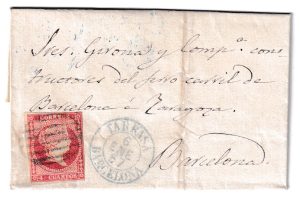 Sres. Girona y Comp.ª cons-
tructores del ferro carril de
Barcelona á Zaragoza.
Barcelona
CORREOS
4 CUARTOS
TARRASA
BARCELONA